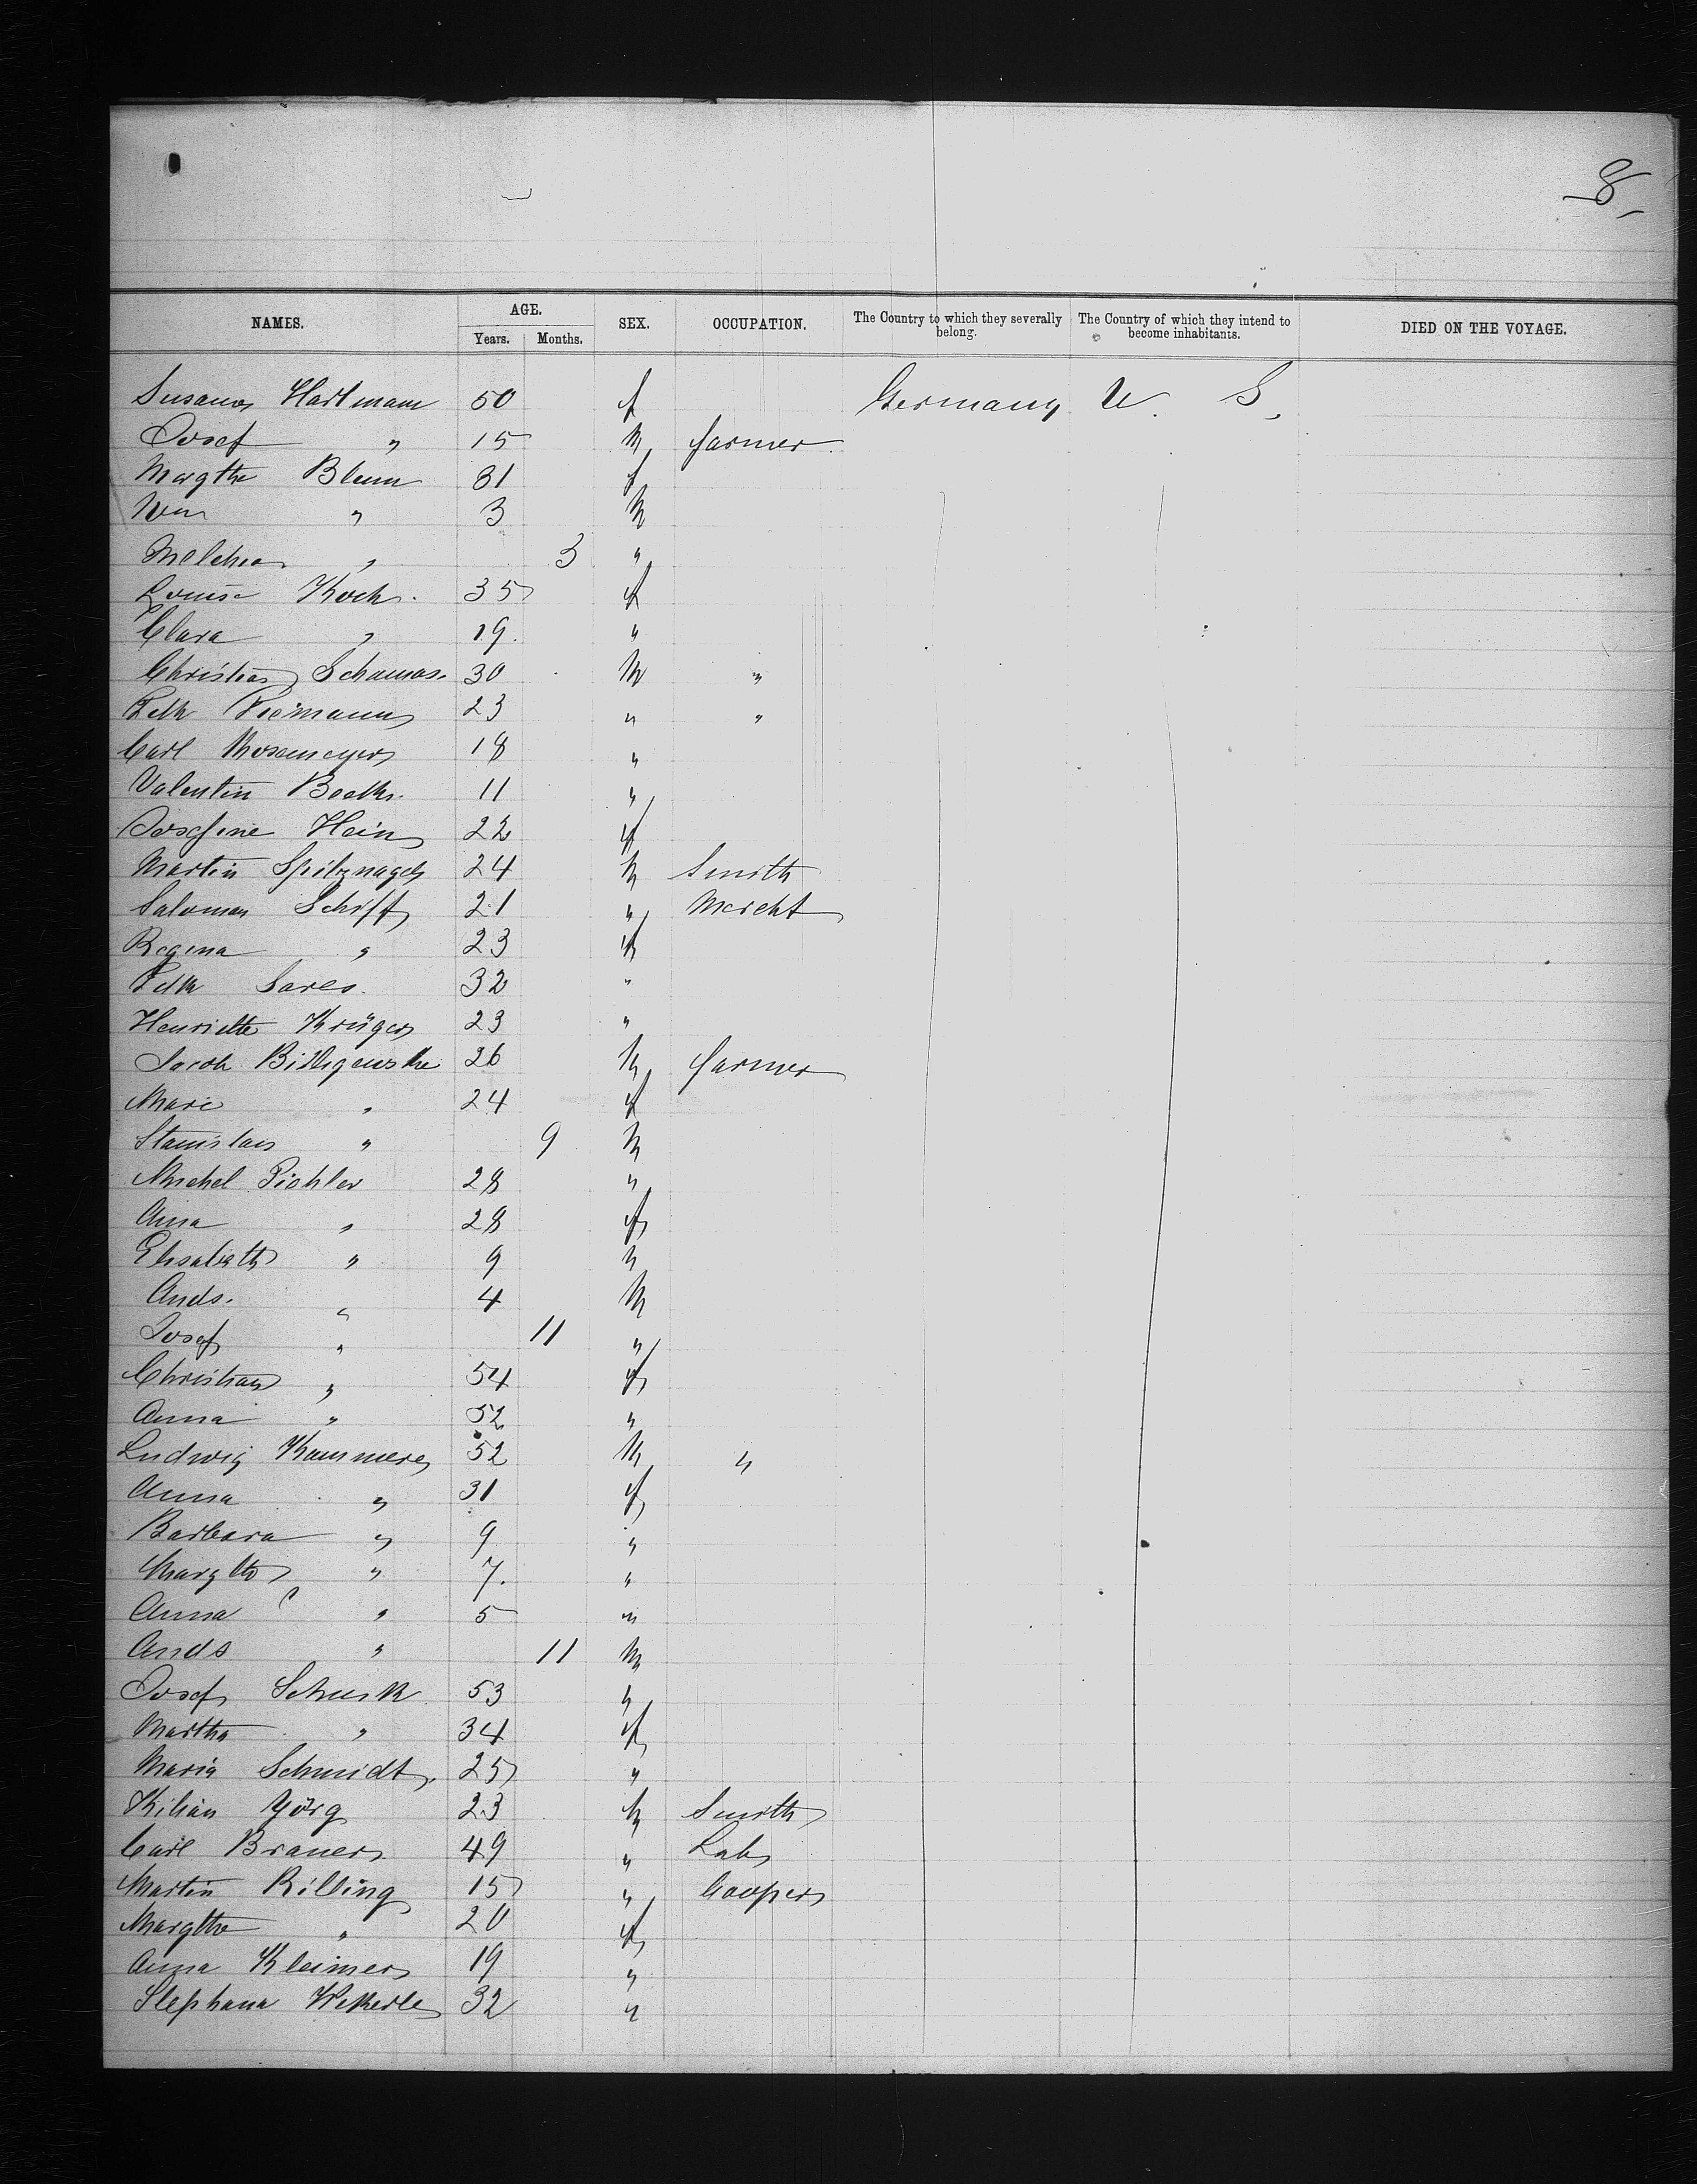 8
NAMES. AGE. SEX. OCCUPATION. The Country to which they severally belong. The Country of which they intend to become inhabitants. DIED ON THE VOYAGE.
Years. Months.
Susanna Hartmann 50 f Germany U. S.
Josef " 15 m farmer
Margthe Blum 31 f
Wm " 3 m
Melchior " 3 "
Louise Koch. 35 f
Clara " 19. "
Christian 30 m "
23 " "
Carl 18 "
Valentin 11 "
Josefine Hein 22 f
Martin Spitznagel 24 m Smith
Salomon Schiff 21 " Mercht
Regina " 23 f
Sares. 32 "
Henriette Krüger 23 "
Jacob 26 m farmer
Marie " 24 f
Stanislaus " 9 m
Michel Pichler 28 "
Anna " 28 f
Elisabeth " 9 "
Ands. " 4 m
Josef " 11 "
Christian " 54 f
Anna " 52 "
Ludwig Kammerer 52 m "
Anna " 31 f
Barbara " 9 "
Margthe " 7. "
Anna " 5 "
Ands " 11 m
Josef Schusk 53 "
Martha " 34 f
Maria Schmidt. 25 "
Kilian Görg 23 m Smith
Carl Brauer 49 " Lab
Martin Rilling 15 " Cooper
Margthe " 20 f
Anna Kleimer 19 "
Stephana Wekerle 32 "